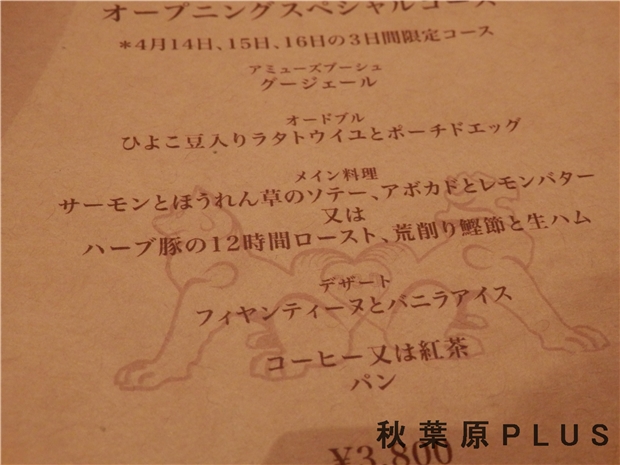 オープニングスペシャルコース
*4月14日、15日、16日の3日間限定コース
アミューズブーシュ
グージェール
オードブル
ひよこ豆入りラタトウイユとポーチドエッグ
メイン料理
サーモンとほうれん草のソテー、アボカドとレモンバター
又は
ハーブ豚の12時間ロースト、荒削り鰹節と生ハム
デザート
フィヤンティーヌとバニラアイス
コーヒー又は紅茶
パン
¥3,800
秋葉原PLUS